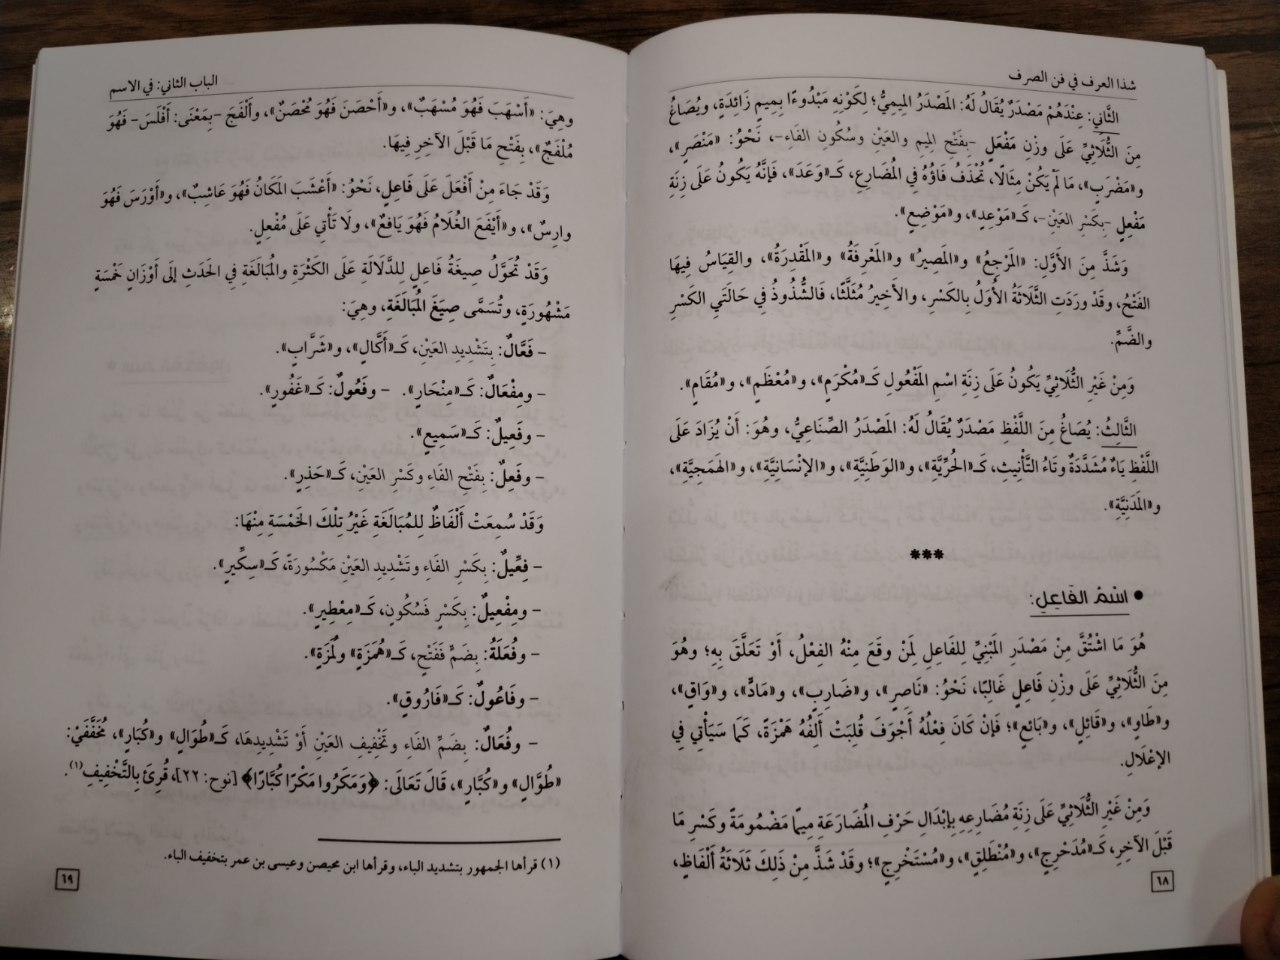 شذا العرف في فن الصرف
الثَّاني: عِنْدَهُمْ مَصْدَرٌ يُقَالُ لَهُ: المَصْدَرُ المِيمِيُّ؛ لِكَوْنِهِ مَبْدُوءًا بِمِيمٍ زَائِدَةٍ، ويُصَاغُ
مِنَ الثُّلَاثِيِّ عَلَى وزْنِ مَفْعَلٍ -بِفَتْحِ المِيمِ والعَيْنِ وسُكُونِ الفَاءِ-، نَحْوُ: «مَنْصَرٍ»،
و«مَضْرَبٍ»، مَا لَمْ يَكُنْ مِثَالًا، تُحْذَفُ فَاؤُهُ فِي المُضَارِعِ، كَـ«وَعَدَ»، فَإِنَّهُ يَكُونُ عَلَى زِنَةِ
مَفْعِلٍ -بِكَسْرِ العَيْنِ-، كَـ«مَوْعِدٍ»، و«مَوْضِعٍ».
وَشَذَّ مِنَ الأَوَّلِ: «المَرْجِعُ» و«المَصِيرُ» و«المَعْرِفَةُ» و«المَقْدِرَةُ»، والقِيَاسُ فِيهَا
الفَتْحُ، وقَدْ ورَدَتِ الثَّلَاثَةُ الأُوَلُ بِالكَسْرِ، والأَخِيرُ مُثَلَّثًا، فَالشُّذُوذُ فِي حَالَتَيِ الكَسْرِ
والضَّمِّ.
وَمِنْ غَيْرِ الثُّلَاثِيِّ يَكُونُ عَلَى زِنَةِ اسْمِ المَفْعُولِ كَـ«مُكْرَمٍ»، و«مُعْظَمٍ»، و«مُقَامٍ».
الثَّالِثُ: يُصَاغُ مِنَ اللَّفْظِ مَصْدَرٌ يُقَالُ لَهُ: المَصْدَرُ الصِّنَاعِيُّ، وهُوَ: أَنْ يُزَادَ عَلَى
اللَّفْظِ يَاءٌ مُشَدَّدَةٌ وتَاءُ التَّأْنِيثِ، كَـ«الحُرِّيَّةِ»، و«الوَطَنِيَّةِ»، و«الإِنْسَانِيَّةِ»، و«الهَمَجِيَّةِ»،
و«المَدَنِيَّةِ».
***
• اسْمُ الفَاعِلِ:
هُوَ مَا اشْتُقَّ مِنْ مَصْدَرِ المَبْنِيِّ لِلفَاعِلِ لِمَنْ وقَعَ مِنْهُ الفِعْلُ، أَوْ تَعَلَّقَ بِهِ؛ وهُوَ
مِنَ الثُّلَاثِيِّ عَلَى وزْنِ فَاعِلٍ غَالِبًا، نَحْوُ: «نَاصِرٍ»، و«ضَارِبٍ»، و«مَادٍّ»، و«وَاقٍ»،
و«طَاوٍ»، و«قَائِلٍ»، و«بَائِعٍ»؛ فَإِنْ كَانَ فِعْلُهُ أَجْوَفَ قُلِبَتْ أَلِفُهُ هَمْزَةً، كَمَا سَيَأْتِي فِي
الإِعْلَالِ.
وَمِنْ غَيْرِ الثُّلَاثِيِّ عَلَى زِنَةِ مُضَارِعِهِ بِإِبْدَالِ حَرْفِ المُضَارَعَةِ مِيمًا مَضْمُومَةً وكَسْرِ مَا
قَبْلَ الآخِرِ، كَـ«مُدَحْرِجٍ»، و«مُنْطَلِقٍ»، و«مُسْتَخْرِجٍ»؛ وقَدْ شَذَّ مِنْ ذَلِكَ ثَلَاثَةُ أَلْفَاظٍ،
٦٨
الباب الثاني: في الاسم
وهِيَ: «أَسْهَبَ فَهُوَ مُسْهَبٌ»، و«أَحْصَنَ فَهُوَ مُحْصَنٌ»، و«أَلْفَجَ -بِمَعْنَى: أَفْلَسَ- فَهُوَ
مُلْفَجٌ»، بِفَتْحِ مَا قَبْلَ الآخِرِ فِيهَا.
وَقَدْ جَاءَ مِنْ أَفْعَلَ عَلَى فَاعِلٍ، نَحْوُ: «أَعْشَبَ المَكَانُ فَهُوَ عَاشِبٌ»، و«أَوْرَسَ فَهُوَ
وارِسٌ»، و«أَيْفَعَ الغُلَامُ فَهُوَ يَافِعٌ»، ولَا تَأْتِي عَلَى مُفْعِلٍ.
وَقَدْ تُحَوَّلُ صِيغَةُ فَاعِلٍ لِلدَّلَالَةِ عَلَى الكَثْرَةِ والمُبَالَغَةِ فِي الحَدَثِ إِلَى أَوْزَانٍ خَمْسَةٍ
مَشْهُورَةٍ، وتُسَمَّى صِيَغَ المُبَالَغَةِ، وهِيَ:
- فَعَّالٌ: بِتَشْدِيدِ العَيْنِ، كَـ«أَكَّالٍ»، و«شَرَّابٍ».
- ومِفْعَالٌ: كَـ«مِنْحَارٍ». - وفَعُولٌ: كَـ«غَفُورٍ».
- وفَعِيلٌ: كَـ«سَمِيعٍ».
- وفَعِلٌ: بِفَتْحِ الفَاءِ وكَسْرِ العَيْنِ، كَـ«حَذِرٍ».
وَقَدْ سُمِعَتْ أَلْفَاظٌ لِلمُبَالَغَةِ غَيْرُ تِلْكَ الخَمْسَةِ مِنْهَا:
- فِعِّيلٌ: بِكَسْرِ الفَاءِ وتَشْدِيدِ العَيْنِ مَكْسُورَةً، كَـ«سِكِّيرٍ».
- ومِفْعِيلٌ: بِكَسْرٍ فَسُكُونٍ، كَـ«مِعْطِيرٍ».
- وفُعَلَةُ: بِضَمٍّ فَفَتْحٍ، كَـ«هُمَزَةٍ» و«لُمَزَةٍ».
- وفَاعُولٌ: كَـ«فَارُوقٍ».
- وفُعَالٌ: بِضَمِّ الفَاءِ وتَخْفِيفِ العَيْنِ أَوْ تَشْدِيدِهَا، كَـ«طُوَالٍ» و«كُبَارٍ»، مُخَفَّفَيْنِ:
«طُوَّالٍ» و«كُبَّارٍ»، قَالَ تَعَالَى: ﴿وَمَكَرُوا مَكْرًا كُبَّارًا﴾ [نوح: ٢٢]، قُرِئَ بِالتَّخْفِيفِ(١).
(١) قرأها الجمهور بتشديد الباء، وقرأها ابن محيصن وعيسى بن عمر بتخفيف الباء.
٦٩